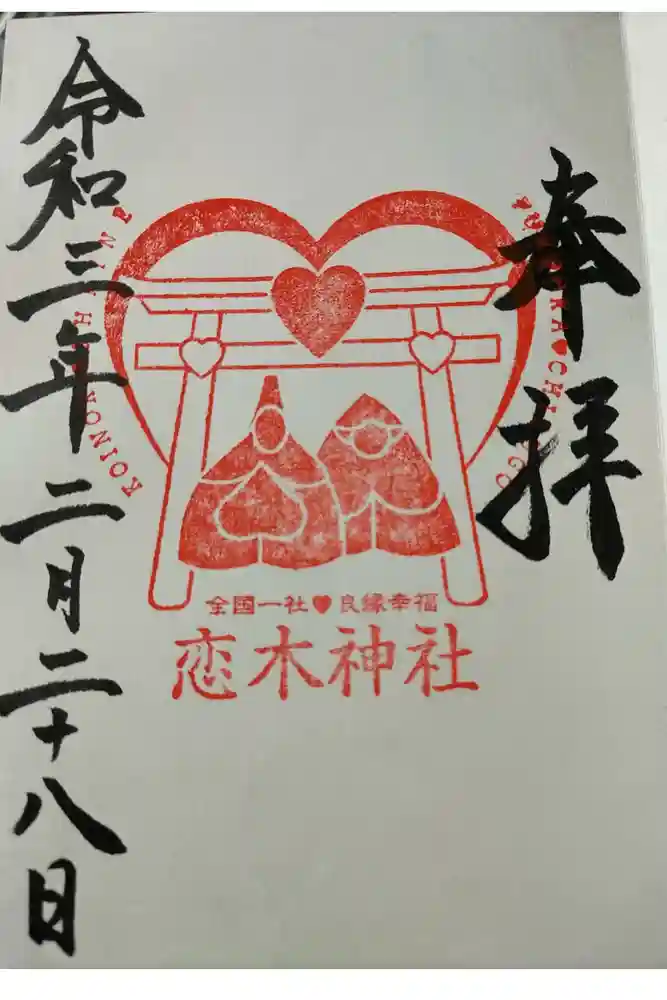 奉拝
KOINOKI SHRINE
FUKUOKA♥CHIKUGO
全国一社♥良縁幸福
恋木神社
令和三年二月二十八日